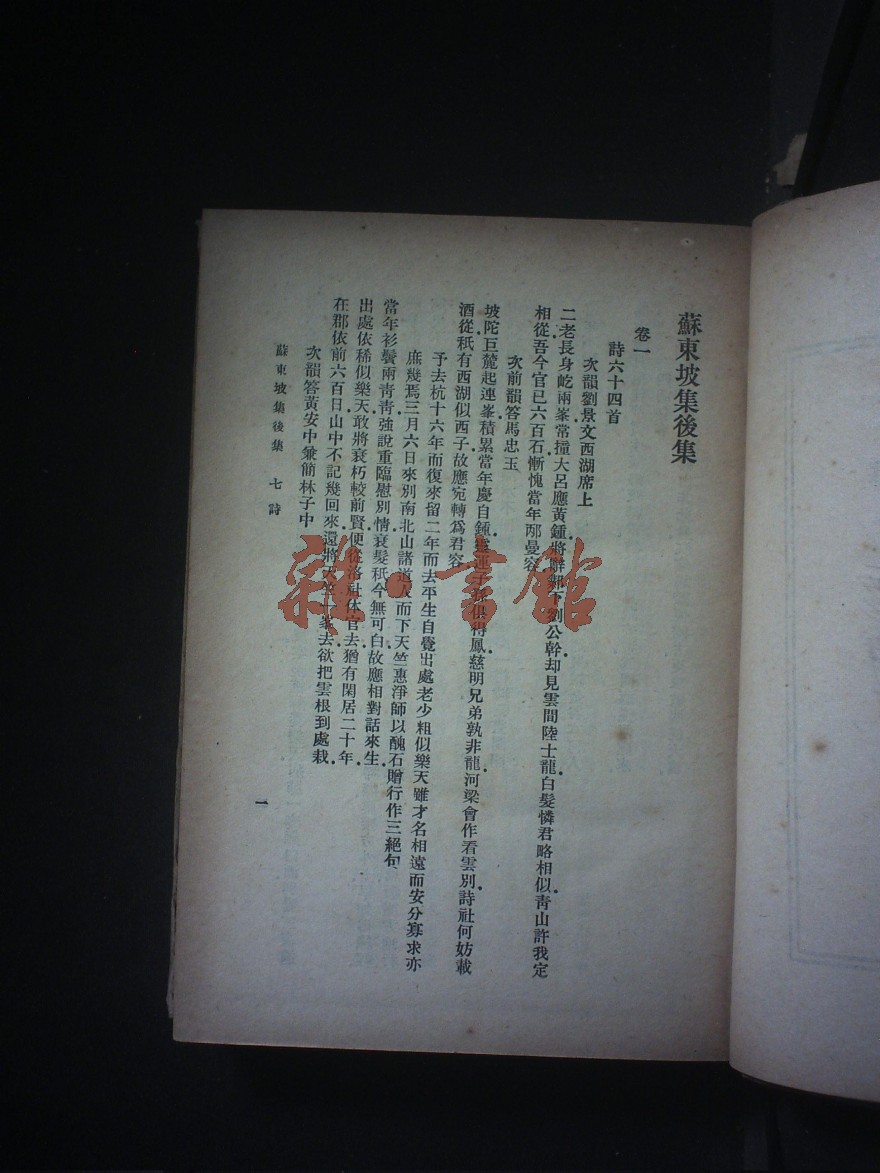 蘇東坡集後集
卷一
詩六十四首
次韻劉景文西湖席上
二老長身屹兩峯常撞大呂應黃鍾將辭鄴下劉公幹却見雲間陸士龍白髮憐君略相似靑山許我定
相從吾今官已六百石慚愧當年邴曼容
次前韻答馬忠玉
坡陀巨麓起連峯積累當年慶自鍾靈運子孫俱得鳳慈明兄弟孰非龍河梁會作看雲別詩社何妨載
酒從秖有西湖似西子故應宛轉爲君容
予去杭十六年而復來留二年而去平生自覺出處老少粗似樂天雖才名相遠而安分寡求亦
庶幾焉三月六日來別南北山諸道人而下天竺惠淨師以醜石贈行作三絕句
當年衫鬢兩靑靑強說重臨慰別情衰髮秖今無可白故應相對話來生
出處依稀似樂天敢將衰朽較前賢便從洛社休官去猶有閑居二十年
在郡依前六百日山中不記幾回來還將天竺一峯去欲把雲根到處栽
次韻答黃安中兼簡林子中
蘇東坡集後集 七 詩
一
雜·書館